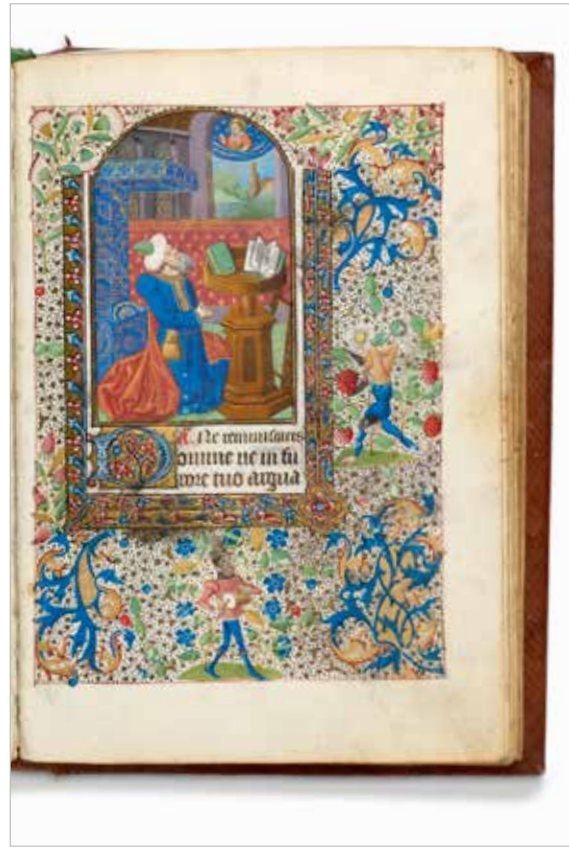 A. Ne reminiscaris
Domine ne in fu
rore tuo argua